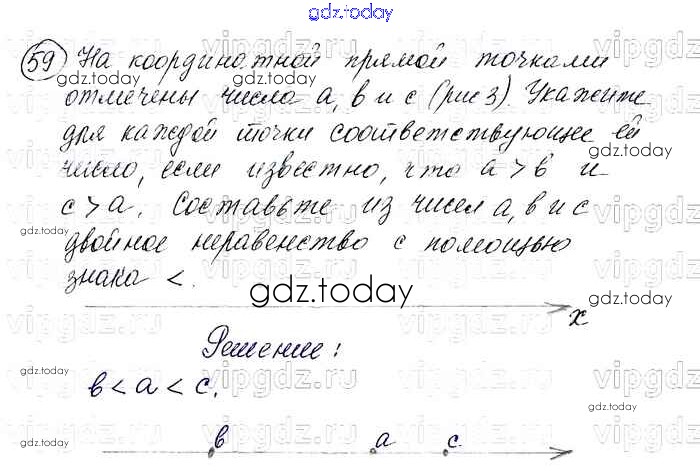 gdz.today
59 На координатной прямой точками
отмечены числа a, b и c (рис 3). Укажите
для каждой точки соответствующее ей
число, если известно, что a > b и
c > a. Составьте из чисел a, b и c
двойное неравенство с помощью
знака <.
gdz.today
x
Решение:
b < a < c.
b a c